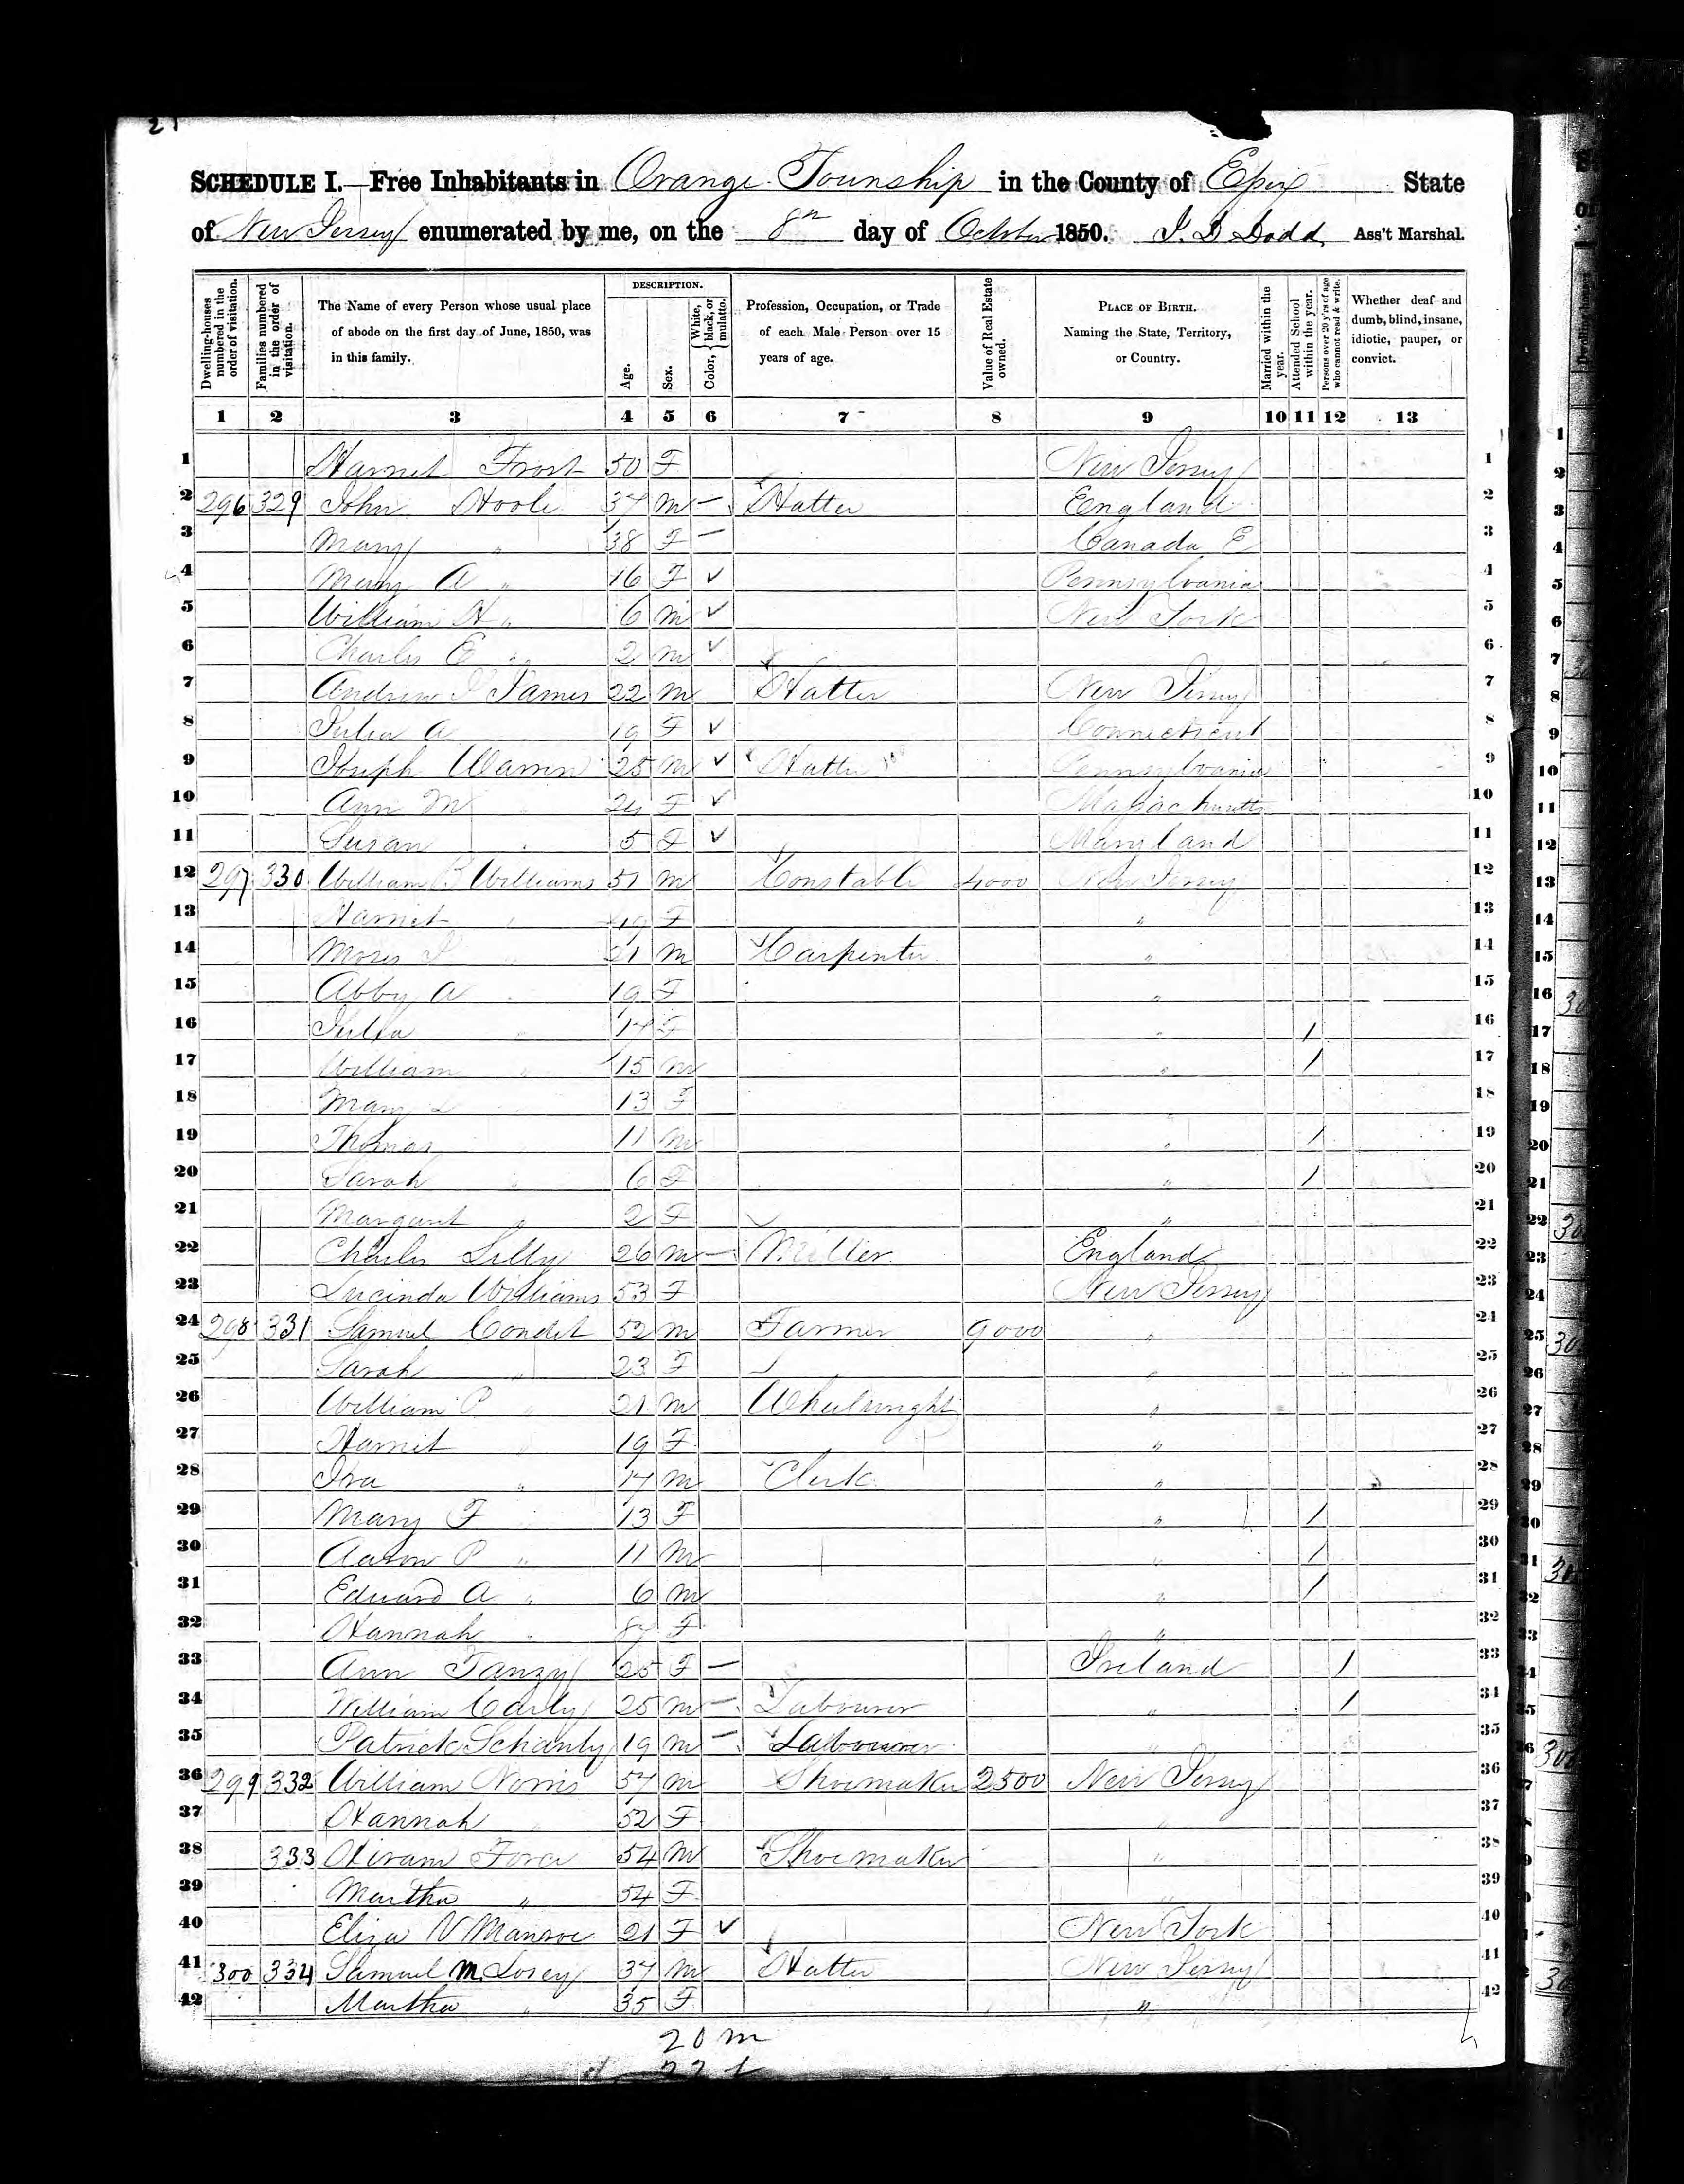 21
SCHEDULE I.—Free Inhabitants in Orange Township in the County of Essex State
of New Jersey enumerated by me, on the 8th day of October 1850. J. D Dodd Ass't Marshal.
Dwelling-houses numbered in the order of visitation.
Families numbered in the order of visitation.
The Name of every Person whose usual place of abode on the first day of June, 1850, was in this family.
DESCRIPTION.
Age.
Sex.
Color, { White, black, or mulatto.
Profession, Occupation, or Trade of each Male Person over 15 years of age.
Value of Real Estate owned.
PLACE OF BIRTH. Naming the State, Territory, or Country.
Married within the year.
Attended School within the year.
Persons over 20 y'rs of age who cannot read & write.
Whether deaf and dumb, blind, insane, idiotic, pauper, or convict.
1 2 3 4 5 6 7 8 9 10 11 12 13
1 Harriet Frost 50 F New Jersey 1
2 296 329 John Hoole 37 M – Hatter England 2
3 Mary " 38 F – Canada E 3
4 Mary A " 16 F ✓ Pennsylvania 4
5 William H " 6 M ✓ New York 5
6 Charles E " 2 M ✓ " 6
7 Andrew J James 22 M Hatter New Jersey 7
8 Julia A 19 F ✓ Connecticut 8
9 Joseph Warren 25 M ✓ Hatter Pennsylvania 9
10 Ann M " 24 F ✓ Massachusetts 10
11 Susan " 5 F ✓ Maryland 11
12 297 330 William B Williams 51 M Constable 4000 New Jersey 12
13 Harriet " 49 F " 13
14 Moses " 21 M Carpenter " 14
15 Abby A " 19 F " 15
16 Julia " 17 F " / 16
17 William " 15 M " / 17
18 Mary " 13 F " 18
19 Thomas " 11 M " / 19
20 Sarah " 6 F " / 20
21 Margaret " 2 F " 21
22 Charles Lilly 26 M – Miller England 22
23 Lucinda Williams 53 F New Jersey 23
24 298 331 Samuel Condit 52 M Farmer 9000 " 24
25 Sarah " 23 F " 25
26 William P " 21 M Wheelwright " 26
27 Harriet " 19 F " 27
28 Ira " 17 M Clerk " 28
29 Mary F " 13 F " / 29
30 Aaron P " 11 M " / 30
31 Edward A " 6 M " / 31
32 Hannah " F " 32
33 Ann Tanzy 25 F – Ireland / 33
34 William Carly 25 M – Labourer " / 34
35 Patrick Schanly 19 M – Labourer " 35
36 299 332 William Norris 57 M Shoemaker 2500 New Jersey 36
37 Hannah " 52 F " 37
38 333 Hiram Force 54 M Shoemaker " 38
39 Martha " 54 F " 39
40 Eliza V Manroe 21 F ✓ New York 40
41 300 334 Samuel M. Losey 37 M Hatter New Jersey 41
42 Martha " 35 F " 42
20 m
22 f